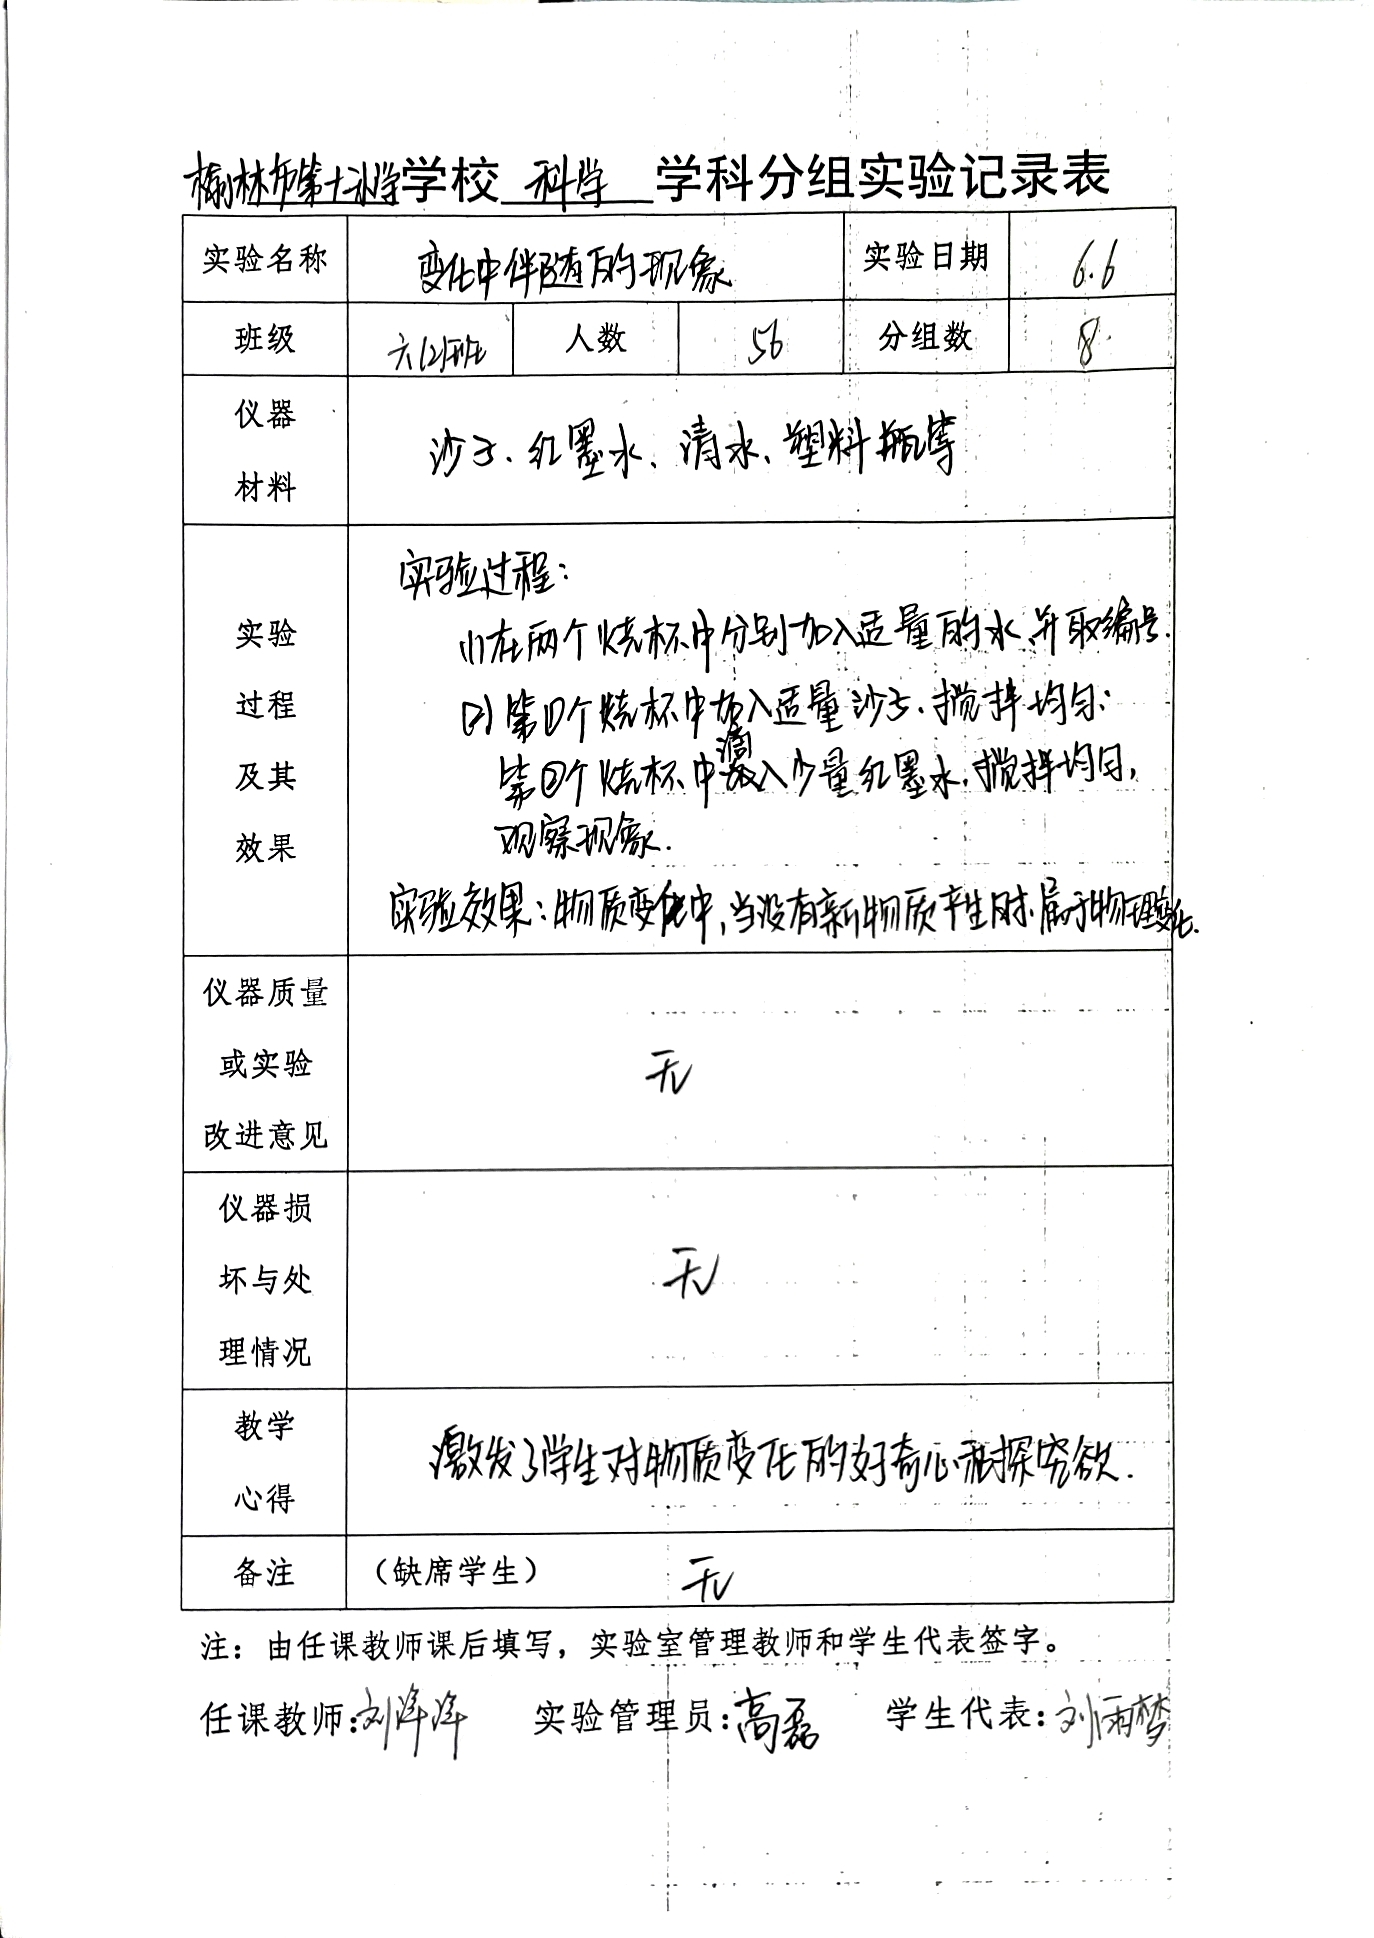 榆林市第十二小学学校 科学 学科分组实验记录表
实验名称 变化中伴随的现象 实验日期 6.6
班级 六(2)班 人数 56 分组数 8
仪器
材料
沙子、红墨水、清水、塑料瓶等
实验
过程
及其
效果
实验过程:
(1)在两个烧杯中分别加入适量的水,并取编号.
(2)第①个烧杯中加入适量沙子,搅拌均匀;
第②个烧杯中滴入少量红墨水,搅拌均匀,
观察现象.
实验效果:物质变化中,当没有新物质产生时,属于物理变化.
仪器质量
或实验
改进意见
无
仪器损
坏与处
理情况
无
教学
心得
激发了学生对物质变化的好奇心和探究欲.
备注 (缺席学生) 无
注:由任课教师课后填写,实验室管理教师和学生代表签字。
任课教师:刘洋洋 实验管理员:高磊 学生代表:刘雨梦